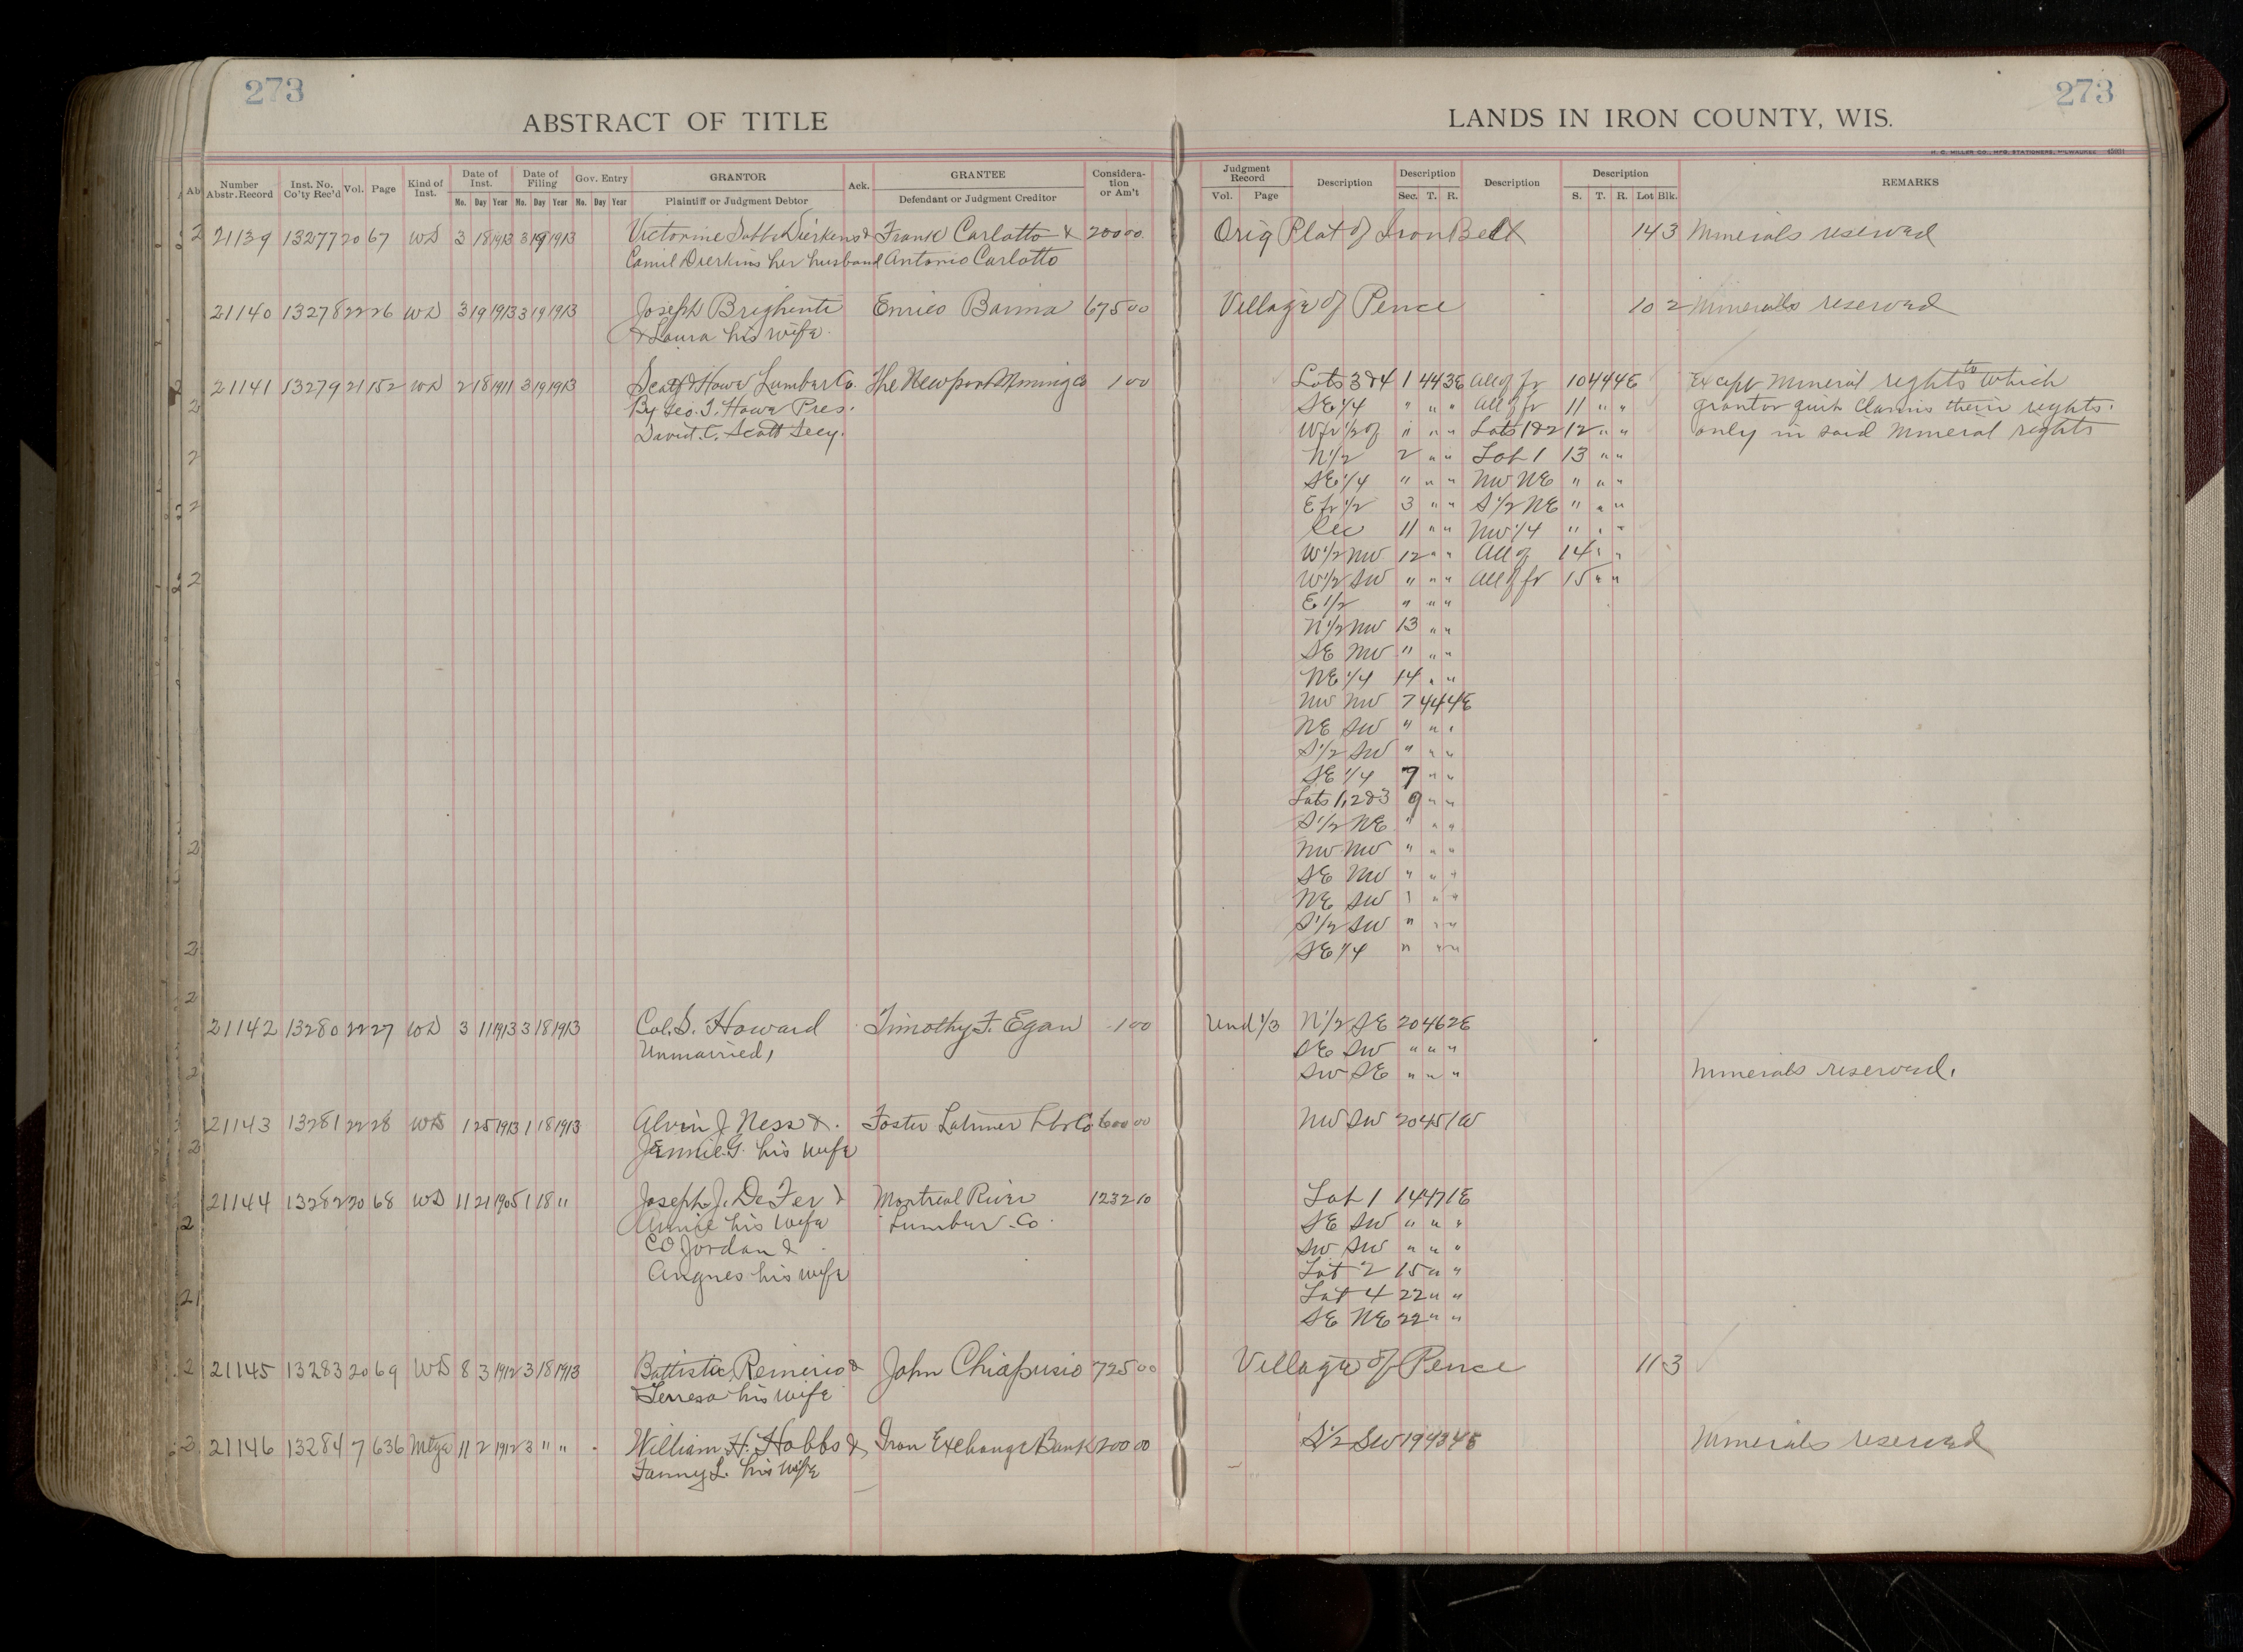 273
273
ABSTRACT OF TITLE
LANDS IN IRON COUNTY, WIS.
H. C. MILLER CO., MFG. STATIONERS, MILWAUKEE
Number Abstr. Record Inst. No. Co'ty Rec'd Vol. Page Kind of Inst. Date of Inst. Date of Filing Gov. Entry GRANTOR Ack. GRANTEE Considera- tion or Am't Judgment Record Description Description Description Description REMARKS
Mo. Day Year Mo. Day Year No. Day Year Plaintiff or Judgment Debtor Defendant or Judgment Creditor Vol. Page Sec. T. R. S. T. R. Lot Blk.
21139 13277 20 67 WD 3 18 1913 3 19 1913 Victorine Dierkens & Frank Carlotto & 200 00 Orig Plat of Iron Belt 14 3 Minerals reserved
Camil Dierkins her husband Antonio Carlotto
21140 13278 22 26 WD 3 19 1913 3 19 1913 Joseph Brighenti Enrico 675 00 Village of Pence 10 2 Minerals reserved
& Laura his wife.
21141 13279 21 152 WD 2 18 1911 3 19 1913 Scott & Howe Lumber Co. The Newport Mining Co 1 00 Lots 3 & 4 1 44 3E All of fr 10 44 4E Except mineral rights to which
By Geo. T. Howe Pres. SE 1/4 " " " All of fr 11 " " grantor quit claims their rights.
David C. Scott Secy. W fr 1/2 of " " " Lots 1 & 2 12 " " only in said mineral rights
N 1/2 2 " " Lot 1 13 " "
SE 1/4 " " " NW NE " " "
E fr 1/2 3 " " S 1/2 NE " " "
Sec 11 " " NW 1/4 " " "
W 1/2 NW 12 " " All of 14 " "
W 1/2 SW " " " All of fr 15 " "
E 1/2 " " "
N 1/2 NW 13 " "
SE NW " " "
NE 1/4 14 " "
NW NW 7 44 4E
NE SW " " "
S 1/2 SW " " "
SE 1/4 7 " "
Lots 1, 2 & 3 9 " "
S 1/2 NE " " "
NW NW " " "
SE NW " " "
NE SW " " "
S 1/2 SW " " "
SE 1/4 " " "
21142 13280 22 27 WD 3 1 1913 3 18 1913 Col. S. Howard Timothy F. Egan 1 00 Und 1/3 N 1/2 SE 20 46 2E
Unmarried, SE SW " " "
SW SE " " " Minerals reserved.
21143 13281 22 28 WD 1 25 1913 1 18 1913 Alvin J Ness & Foster Latimer Lbr Co 600 00 NW SW 20 45 1W
Jennie G. his wife
21144 13282 20 68 WD 11 21 1905 1 18 " Joseph J. De Fer & Montreal River 1232 10 Lot 1 14 47 1E
Annie his wife Lumber Co. SE SW " " "
CO Jordan & SW SW " " "
Angnes his wife Lot 2 15 " "
Lot 4 22 " "
SE NE 22 " "
21145 13283 20 69 WD 8 3 1912 3 18 1913 Battista Reinerio & John Chiapusio 725 00 Village of Pence 11 3
Terresa his wife
21146 13284 7 636 Mtge 11 2 1912 3 " " William H. Hobbs & Iron Exchange Bank 200 00 S 1/2 SW 19 43 4E Minerals reserved
Fanny L. his wife